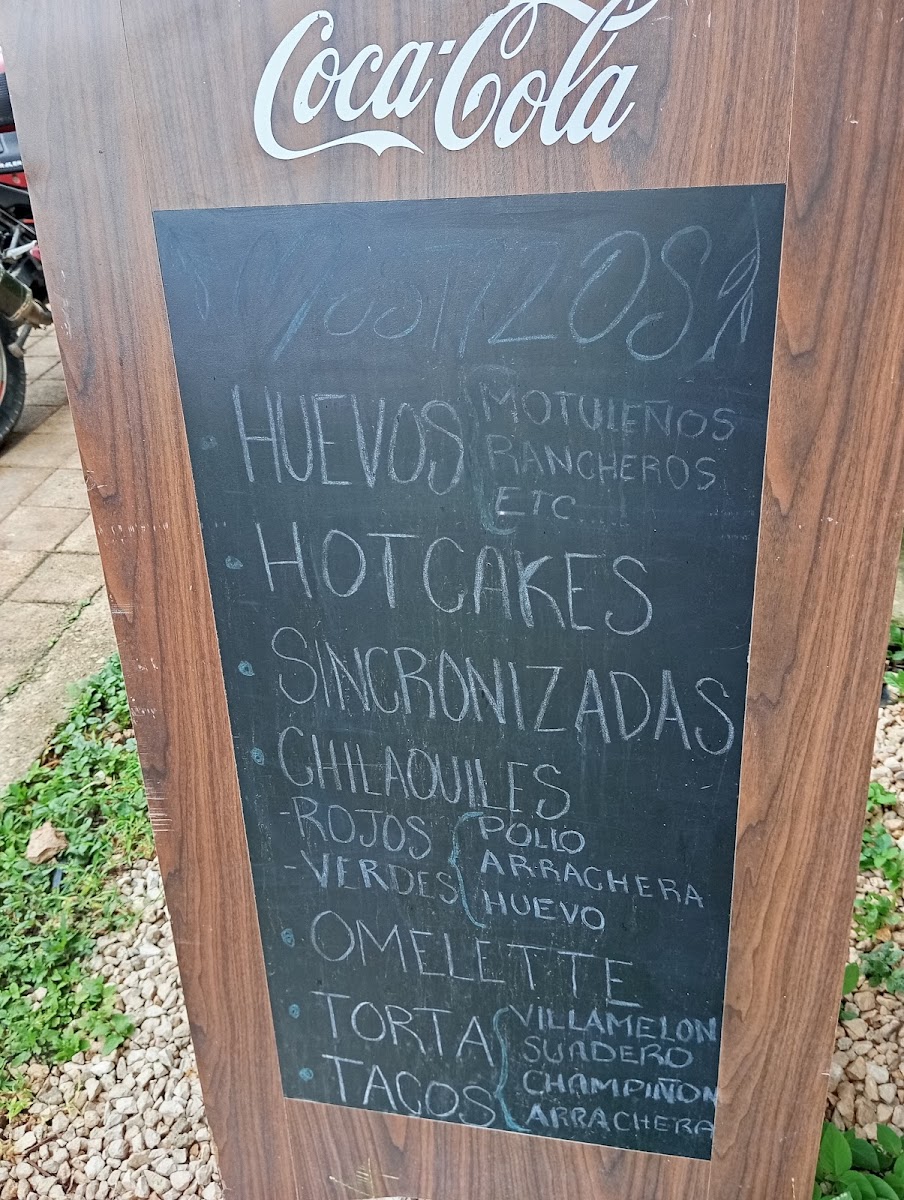 Coca-Cola
MESTIZOS
HUEVOS
MOTULEÑOS
RANCHEROS
ETC...
HOT CAKES
SINCRONIZADAS
CHILAQUILES
-ROJOS
-VERDES
POLLO
ARRACHERA
HUEVO
OMELETTE
TORTAS
TACOS
VILLAMELON
SUADERO
CHAMPIÑON
ARRACHERA